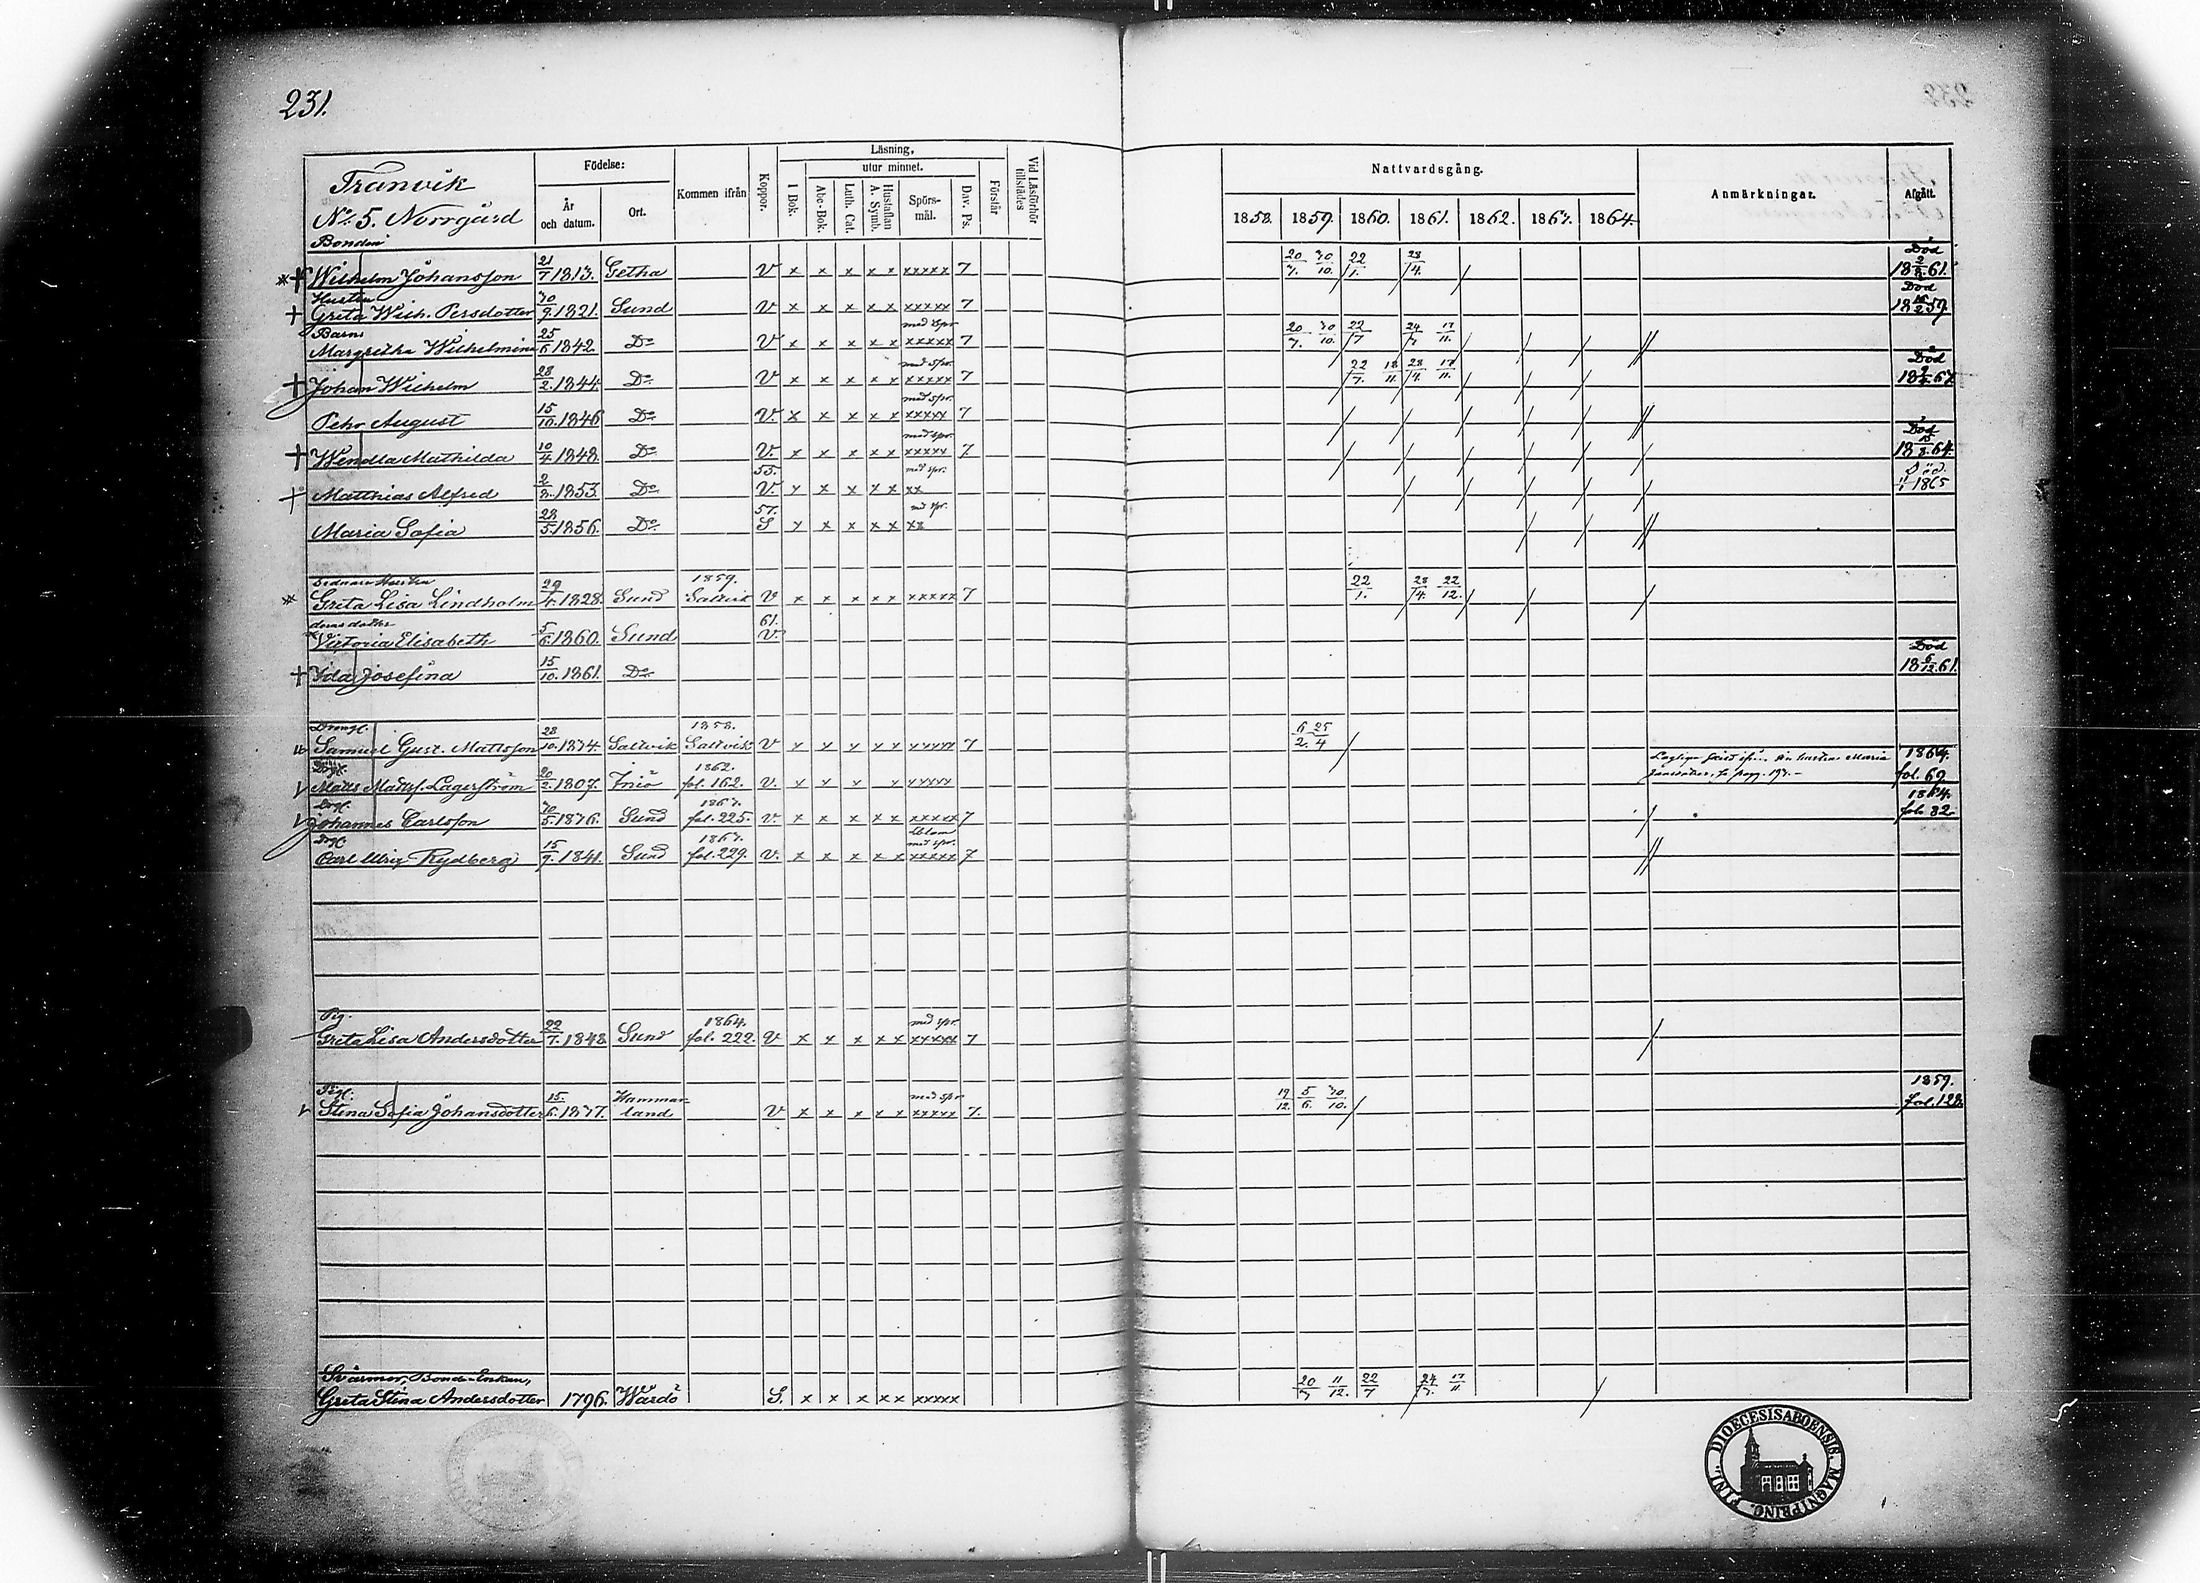 231.
Tranvik
No 5. Norrgård
Födelse:
År och datum.
Ort.
Kommen ifrån
Koppor.
Läsning,
utur minnet.
I Bok.
Abc-Bok.
Luth. Cat.
Hustaflan A. Symb.
Spörsmål.
Dav. Ps.
Förstår
Vid Läsförhör tillstädes
Nattvardsgång.
1858. 1859. 1860. 1861. 1862. 1863. 1864.
Anmärkningar.
Afgått.
Bonden
Wilhelm Johansson 21/7 1813. Getha V x x x x x xxxxx 7 30/10. 22/1. 28/4. Död 61.
Hustru
Greta Wilh. Persdotter 30/9. 1821. Sund V x x x x x xxxxx 7 Död 59.
Barn
Margretha Wilhelmina 25/6 1842 Do V x x x x x med spr xxxxx 7 20/7. 30/10. 22/7 24/7 17/11.
Johan Wilhelm 28/2. 1844 Do V x x x x x med spr. xxxxx 7 22/7. 18/11. 28/4. 17/11. Död 67
Pehr August 15/10. 1846 Do V. x x x x x med spr. xxxxx 7
Wendla Mathilda 10/4 1848. Do V. x x x x x med spr. xxxxx 7 Död 64.
Matthias Alfred 2/3. 1853. Do 55. V. x x x x x med spr. xx Död 1865
Maria Sofia 28/5. 1856. Do 57. S x x x x x med spr. xx
Greta Lisa Lindholm 1828. Sund 1859. Saltvik V x x x x x xxxxx 7 22/1. 28/4. 22/12.
deras dotter
Victoria Elisabeth 5/6. 1860. Sund 61. V.
Ida Josefina 15/10. 1861. Do Död 18 6/12. 61.
Samuel Gust. Mattsson 28/10. 1834. Saltvik 1858. Saltvik V x x x x x xxxxx 7 6/2. 25/4
Matts Mattss. Lagerström 20/2. 1807. 1862. fol. 162. V. x x x x xxxxx hustru Maria 1864. fol. 69
Drgl.
Johannes Carlsson 30/5. 1836. Sund 1863. fol. 225. V. x x x x x xxxxx 7 1864. fol. 82.
Drgl.
Carl Ulrik Rydberg 15/9. 1841. Sund 1863. fol. 229. V. x x x x x med spr. xxxxx 7
Pig.
Greta Lisa Andersdotter 22/7. 1848 Sund 1864. fol. 222. V x x x x x med spr. xxxxx 7
Pigl.
Stina Sofia Johansdotter 15/6. 1837. Hammarland V x x x x x med spr xxxxx 7. 19/12. 5/6. 30/10. 1859. fol. 128.
Svärmor, Bonde-Enkan,
Greta Stina Andersdotter 1796. Wårdö S. x x x x x xxxxx 20/7 11/12. 22/7 24/7. 17/11
DIOECESIS ABOENSIS. MAGNI PRINC. FINL.